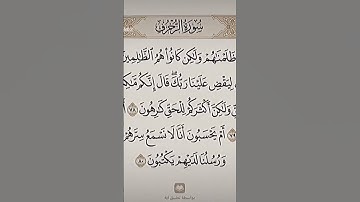 سُورَةُ الزُّخْرُفِ
ظَلَمْنَٰهُمْ وَلَٰكِن كَانُوا۟ هُمُ ٱلظَّٰلِمِينَ
لِيَقْضِ عَلَيْنَا رَبُّكَ ۖ قَالَ إِنَّكُم مَّٰكِ
وَلَٰكِنَّ أَكْثَرَكُمْ لِلْحَقِّ كَٰرِهُونَ ٧٨
أَمْ يَحْسَبُونَ أَنَّا لَا نَسْمَعُ سِرَّهُمْ
وَرُسُلُنَا لَدَيْهِمْ يَكْتُبُونَ ٨٠
بواسطة تطبيق آية